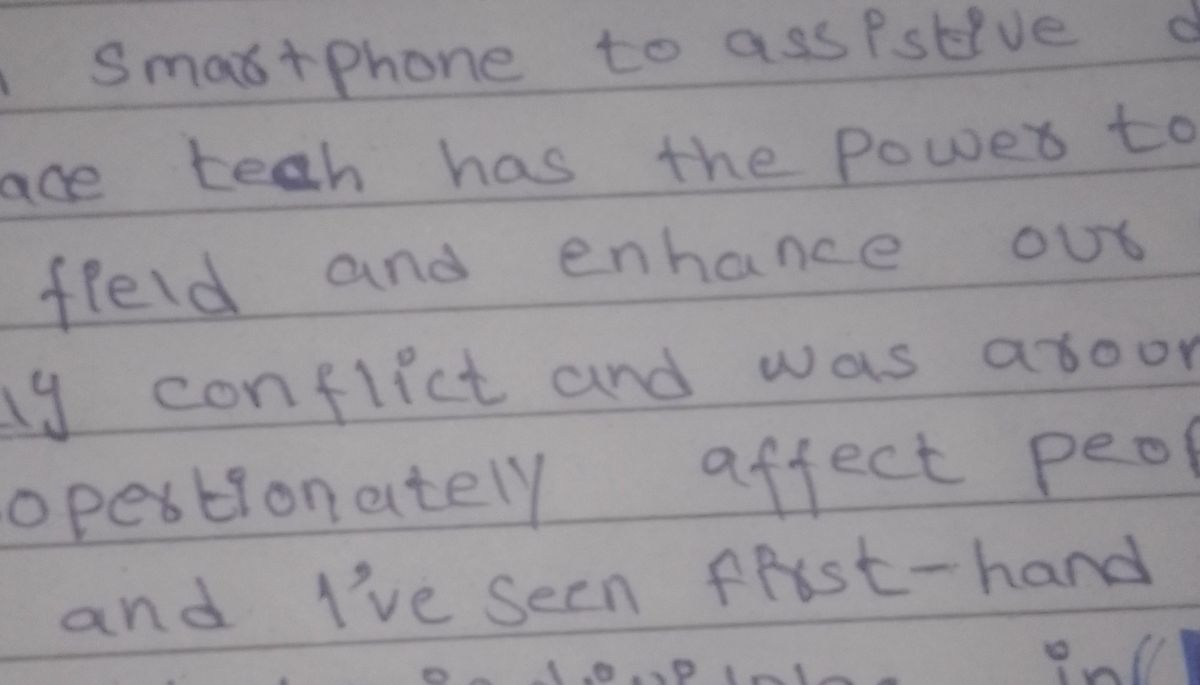 smartphone to assistive
ace teah has the power to
field and enhance our
ly conflict and was aroor
opertionately affect peop
and I've seen first-hand
in